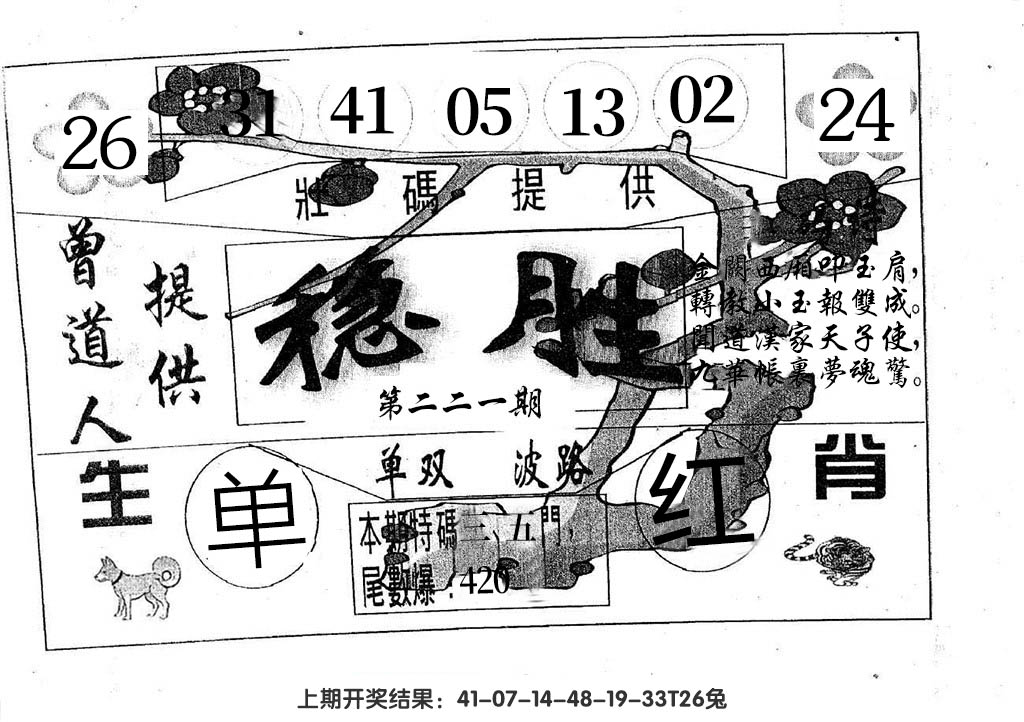 26 31 41 05 13 02 24
壯碼提供
特
曾道人
提供
稳胜
第二二一期
金闕西廂叩玉肩，
轉教小玉報雙成。
聞道漢家天子使，
九華帳裏夢魂驚。
生肖
单双 波路
单 红
本期特碼三、五門，
尾數爆：420
上期开奖结果：41-07-14-48-19-33T26兔